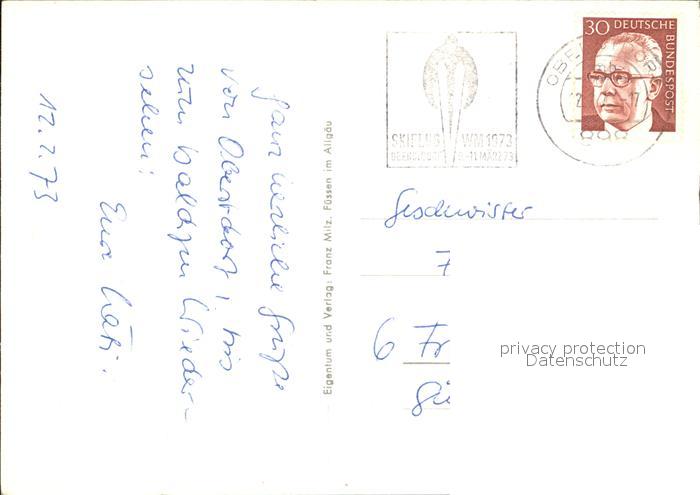 12.2.73
Ganz herzliche Grüße
von Oberstdorf, bis
zum baldigen Wieder-
sehen!
Eure
Eigentum und Verlag: Franz Milz, Füssen im Allgäu
SKIFLUG WM 1973
OBERSTDORF 9.-11.MÄRZ 73
30 DEUTSCHE
BUNDESPOST
Geschwister
7
6 Fr
privacy protection
Datenschutz